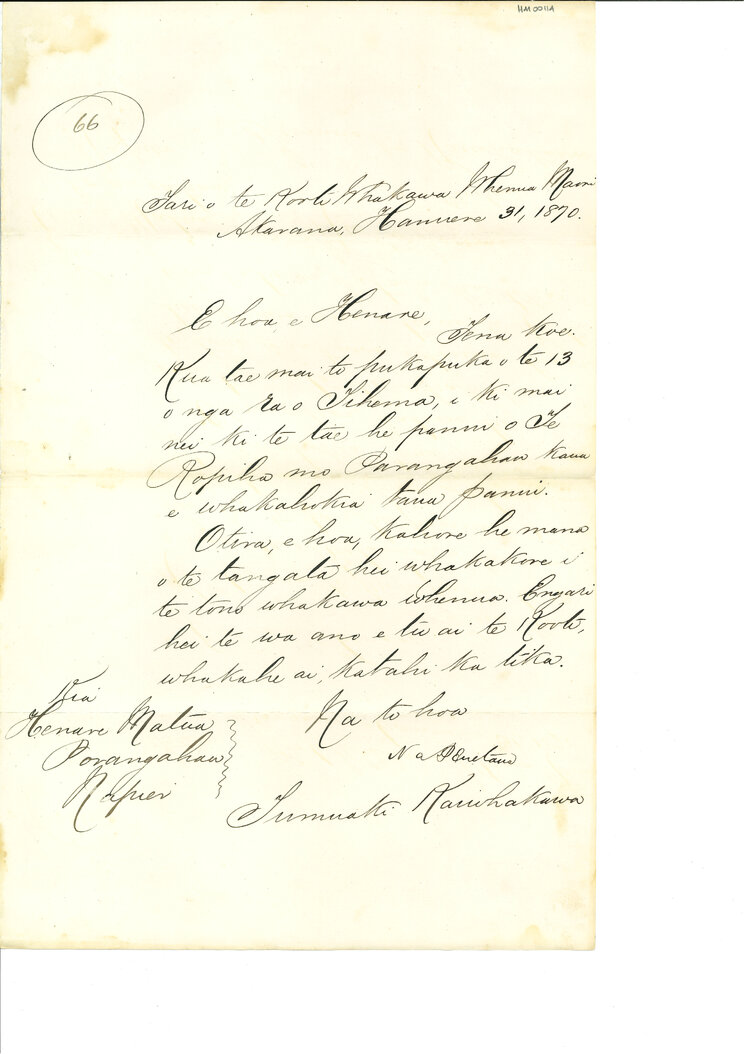 HM0011A
66
Tari o te Kooti Whakawa Whenua Maori
Akarana, Hanuere 31, 1870.
E hoa, e Henare,
Tena koe.
Kua tae mai to pukapuka o te 13
o nga ra o Tihema, i ki mai
nei ki te tae he panui o Te
Ropiha mo Parangahau kaua
e whakahokia taua panui.
Otira, e hoa, kahore he mana
o te tangata hei whakakore i
te tono whakawa whenua. Engari
hei te wa ano e tu ai te Kooti,
whakahe ai, katahi ka tika.
Na to hoa
Na
Tumuaki Kaiwhakawa
Kia
Henare Matua
Porangahau
Napier